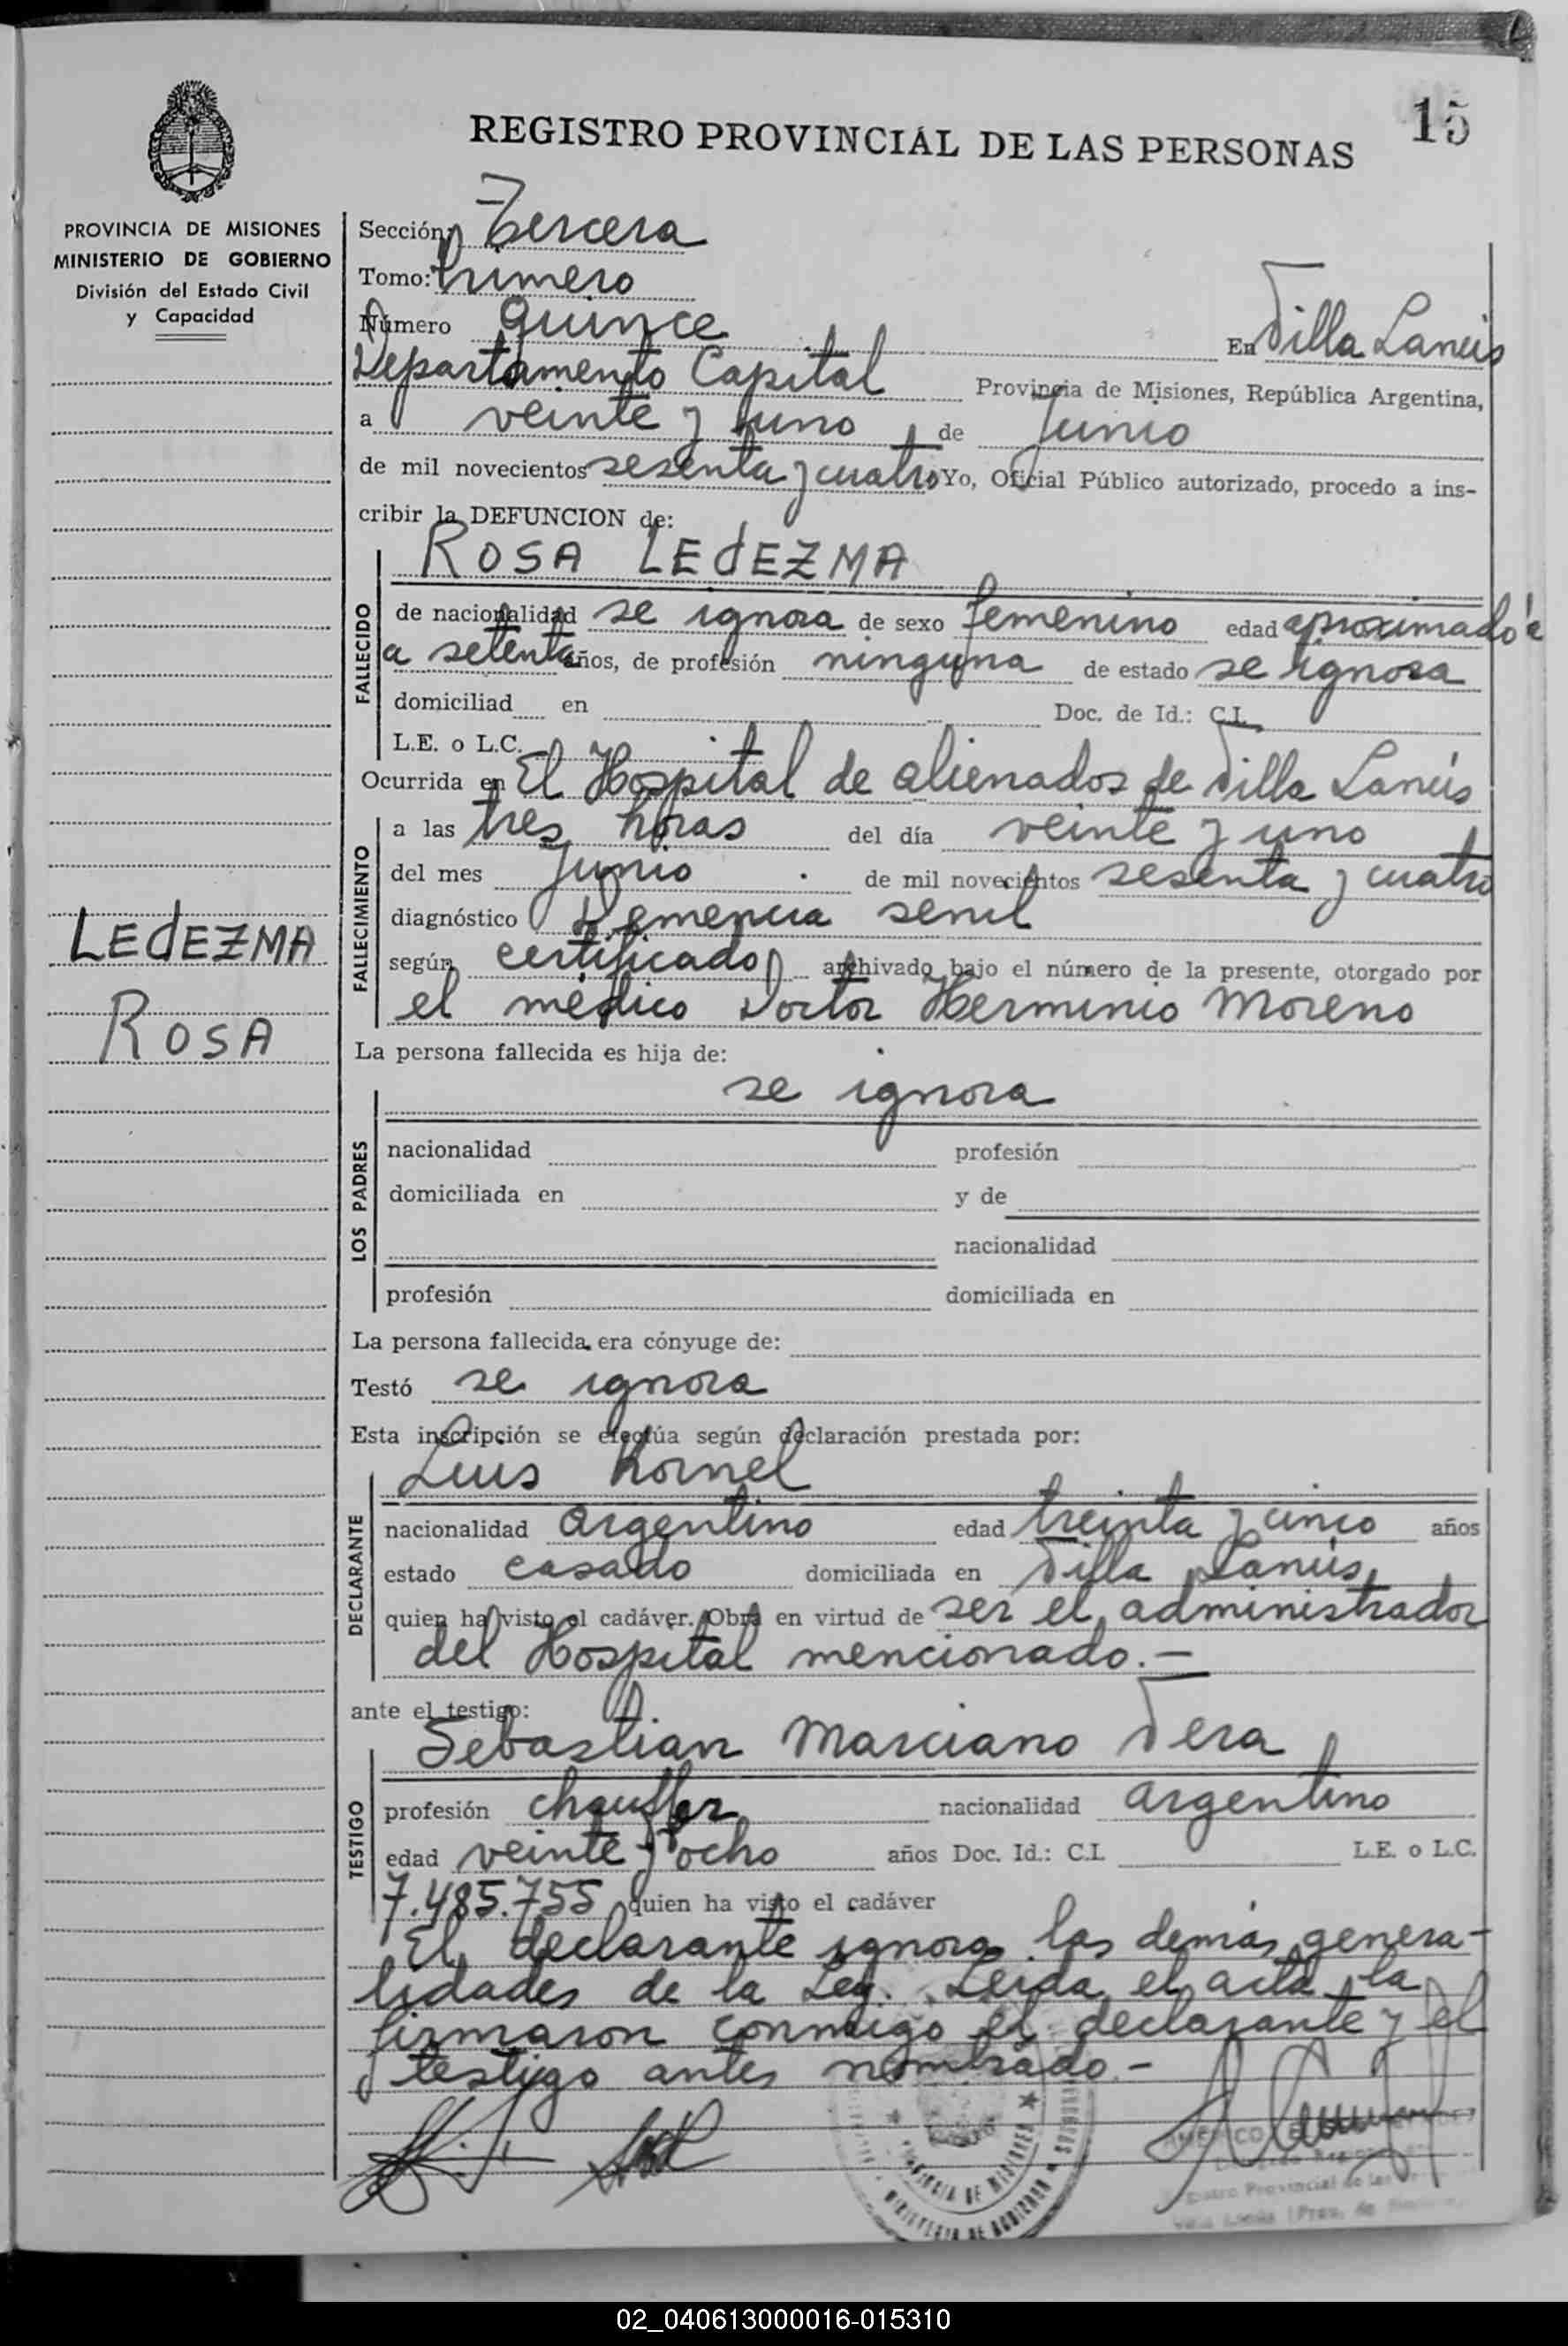 15
REGISTRO PROVINCIAL DE LAS PERSONAS
PROVINCIA DE MISIONES
MINISTERIO DE GOBIERNO
División del Estado Civil
y Capacidad
LEDEZMA
ROSA
Sección: Tercera
Tomo: Primero
Número quince En Villa Lanús
Departamento Capital Provincia de Misiones, República Argentina,
a veinte y uno de Junio
de mil novecientos sesenta y cuatro Yo, Oficial Público autorizado, procedo a ins-
cribir la DEFUNCION de:
ROSA LEDEZMA
FALLECIDO
de nacionalidad se ignora de sexo femenino edad aproximado
a setenta años, de profesión ninguna de estado se ignora
domiciliad en Doc. de Id.: C.I.
L.E. o L.C.
Ocurrida en El Hospital de alienados de Villa Lanús
FALLECIMIENTO
a las tres horas del día veinte y uno
del mes Junio de mil novecientos sesenta y cuatro
diagnóstico Demencia senil
según certificado archivado bajo el número de la presente, otorgado por
el médico Doctor Herminio Moreno
La persona fallecida es hija de:
se ignora
LOS PADRES
nacionalidad profesión
domiciliada en y de
nacionalidad
profesión domiciliada en
La persona fallecida era cónyuge de:
Testó se ignora
Esta inscripción se efectúa según declaración prestada por:
Luis Kornel
DECLARANTE
nacionalidad argentino edad treinta y cinco años
estado casado domiciliada en Villa Lanús
quien ha visto el cadáver. Obra en virtud de ser el administrador
del Hospital mencionado.—
ante el testigo:
Sebastian Marciano Vera
TESTIGO
profesión chauffer nacionalidad argentino
edad veinte y ocho años Doc. Id.: C.I. L.E. o L.C.
7.485.755 quien ha visto el cadáver
El declarante ignora las demás genera-
lidades de la Ley. Leida el acta la
firmaron conmigo el declarante y el
testigo antes nombrado.-
PROVINCIA DE MISIONES
MINISTERIO DE GOBIERNO
02_040613000016-015310